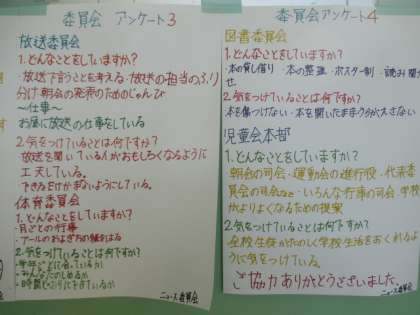 委員会 アンケート3
放送委員会
1.どんなことをしていますか?
・放送で言うことを考える・放送の担当のふり
分け・朝会の発表のためのじゅんび
〜仕事〜
お昼に放送の仕事をしている
2.気をつけていることは何ですか?
放送を聞いている人がおもしろくなるように
工夫している。
できるだけかまないようにしている。
体育委員会
1.どんなことをしていますか?
・月ごとの行事
・プールの
2.気をつけていることは何ですか?
・みんなたのしめるか
・時間どおりにできているか
ニュース委員会
委員会アンケート4
図書委員会
1.どんなことをしていますか?
・本の貸し借り ・本の整理 ・ポスター制 ・読み聞
せ
2.気をつけていることは何ですか?
本を傷つけない ・本を開いたまま
児童会本部
1.どんなことをしていますか?
・朝会の司会・運動会の進行役・代表委
員会の司会など・いろんな行事の司会・学校
がよりよくなるための提案
2.気をつけていることは何ですか?
全校生徒がたのしく学校生活をおくれるよ
うに気をつけている。
ご協力ありがとうございました
ニュース委員会